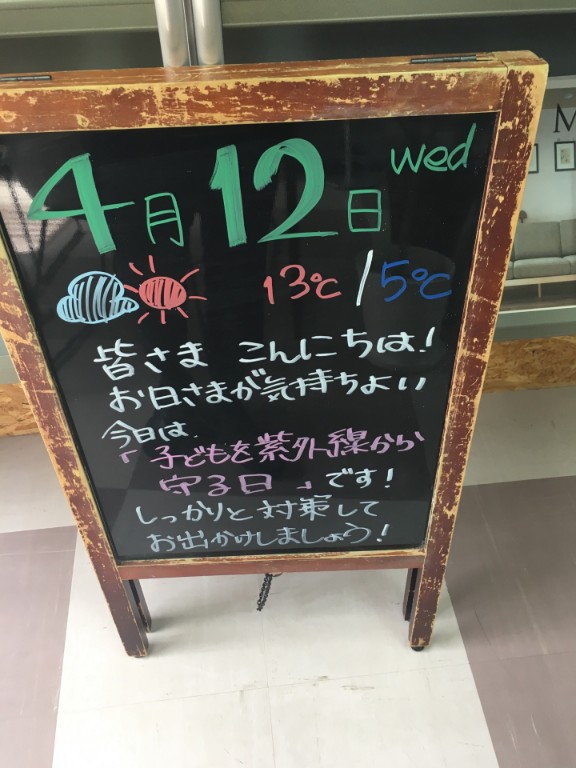 4月12日 wed
13℃/5℃
皆さま こんにちは!
お日さまが気持ちよい
今日は
「子どもを紫外線から
守る日」です!
しっかりと対策して
お出かけしましょう!
M